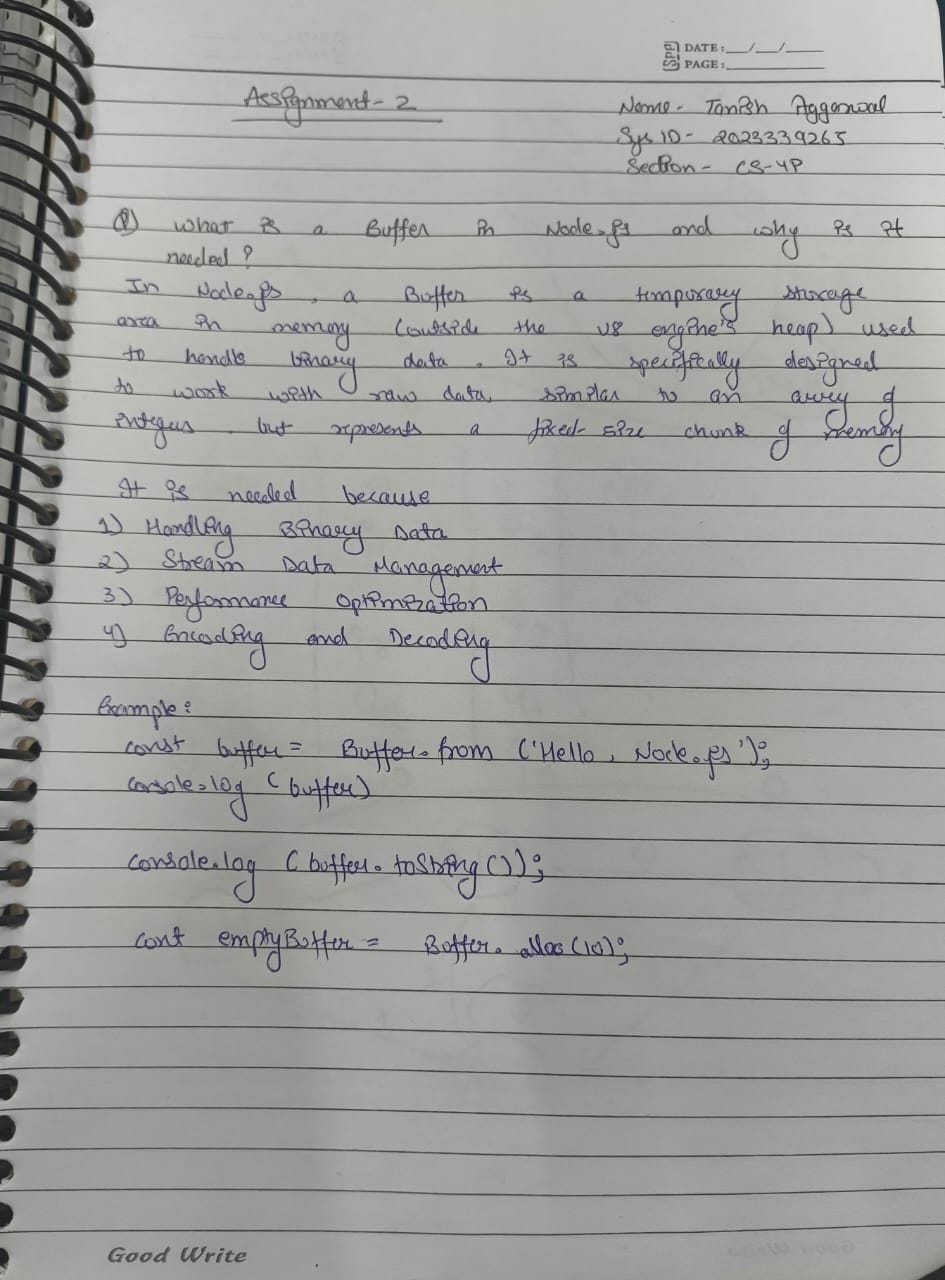 DATE: __/__/__
PAGE:
Assignment - 2
Name - Tanish Aggarwal
Sys ID - 2023339265
Section - CS-4P
Q) What is a Buffer in Node.js and why is it
needed?
In Node.js, a Buffer is a temporary storage
area in memory (outside the V8 engine's heap) used
to handle binary data. It is specifically designed
to work with raw data, similar to an array of
integers but represents a fixed-size chunk of memory
It is needed because
1) Handling Binary Data
2) Stream Data Management
3) Performance Optimization
4) Encoding and Decoding
Example:
const buffer = Buffer.from ('Hello, Node.js');
console.log (buffer)
console.log (buffer.toString());
cont emptyBuffer = Buffer.alloc(10);
Good Write